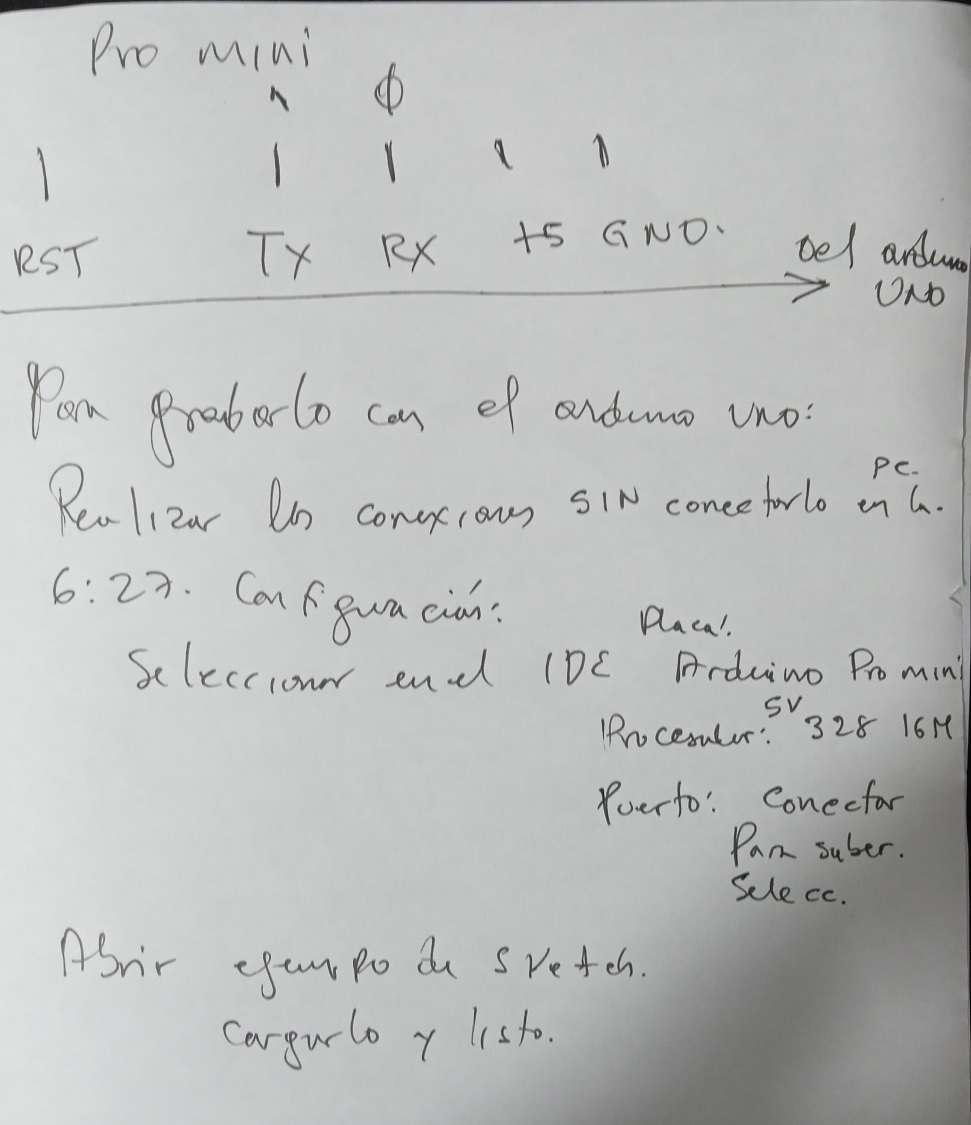 Pro mini
1 0
RST TX RX +5 GND.
Del arduino
UNO
Para grabarlo con el arduino UNO:
PC.
Realizar las conexiones SIN conectarlo en la.
6:27. Configuración:
Placa:
Seleccionar en el IDE Arduino Pro mini
5V
Procesador: 328 16M
Puerto: Conectar
Para suber.
Selecc.
Abrir ejempo de sketch.
Cargarlo y listo.